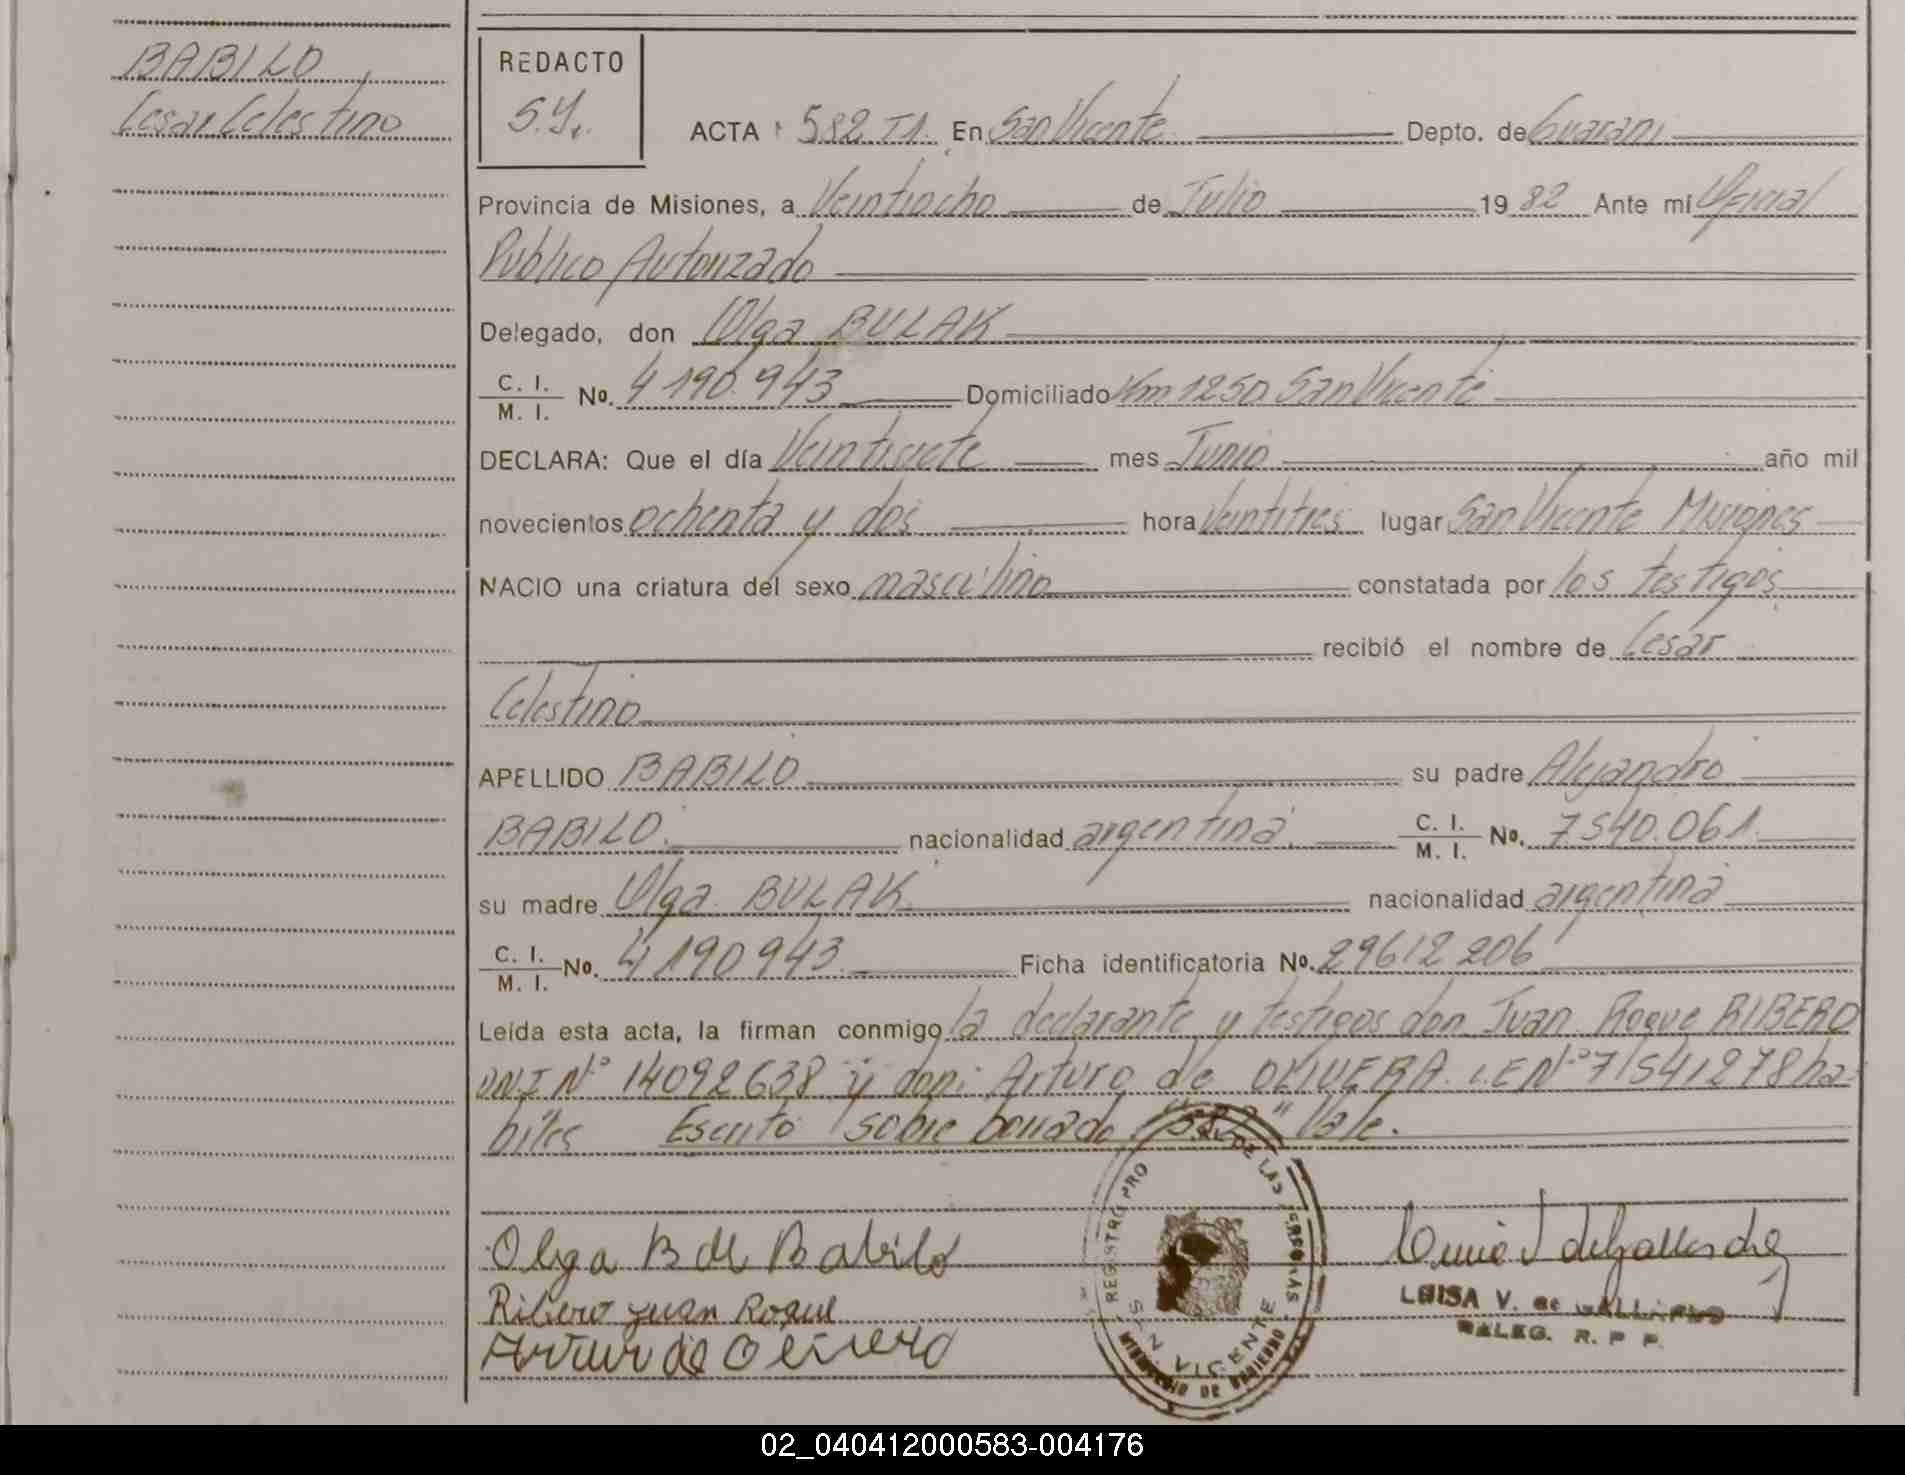 BABILO
Cesar Celestino
REDACTO
S.Y.
ACTA 582 T1. En San Vicente Depto. de Guaraní
Provincia de Misiones, a Veintiocho de Julio 1982 Ante mí Oficial
Publico Autorizado
Delegado, don Olga BULAK
C. I.
M. I. No. 4190.943 Domiciliado Km 1250 San Vicente
DECLARA: Que el día Veintisiete mes Junio año mil
novecientos ochenta y dos hora Veintitres lugar San Vicente Misiones
NACIO una criatura del sexo masculino constatada por los testigos
recibió el nombre de Cesar
Celestino
APELLIDO BABILO su padre Alejandro
BABILO. nacionalidad argentina. C. I.
M. I. No. 7540.061.
su madre Olga BULAK nacionalidad argentina
C. I.
M. I. No. 4190943 Ficha identificatoria No. 29612206
Leída esta acta, la firman conmigo la declarante y testigos don Juan Roque RIBERO
DNI Nº 14092638 y don: Arturo de OLIVERA L.E Nº 7541278 ha-
biles Escrito sobre borrado "582" Vale.
Olga B de Babilo
Ribero Juan Roque
Arturo de Olivera
REGISTRO PRO DE LAS PERSONAS
SAN VICENTE
MINISTERIO DE GOBIERNO
LUISA V. de GALLARDO
DELEG. R. P. P.
02_040412000583-004176